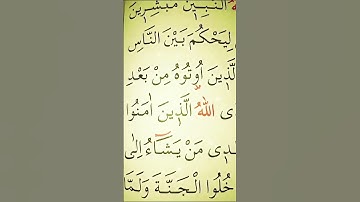 النَّبِيّٖنَ مُبَشِّرٖينَ
لِيَحْكُمَ بَيْنَ النَّاسِ
الَّذٖينَ اُوتُوهُ مِنْ بَعْدِ
ى اللّٰهُ الَّذٖينَ اٰمَنُوا
دٖى مَنْ يَشَٓاءُ اِلٰى
خُلُوا الْجَنَّةَ وَلَمَّا